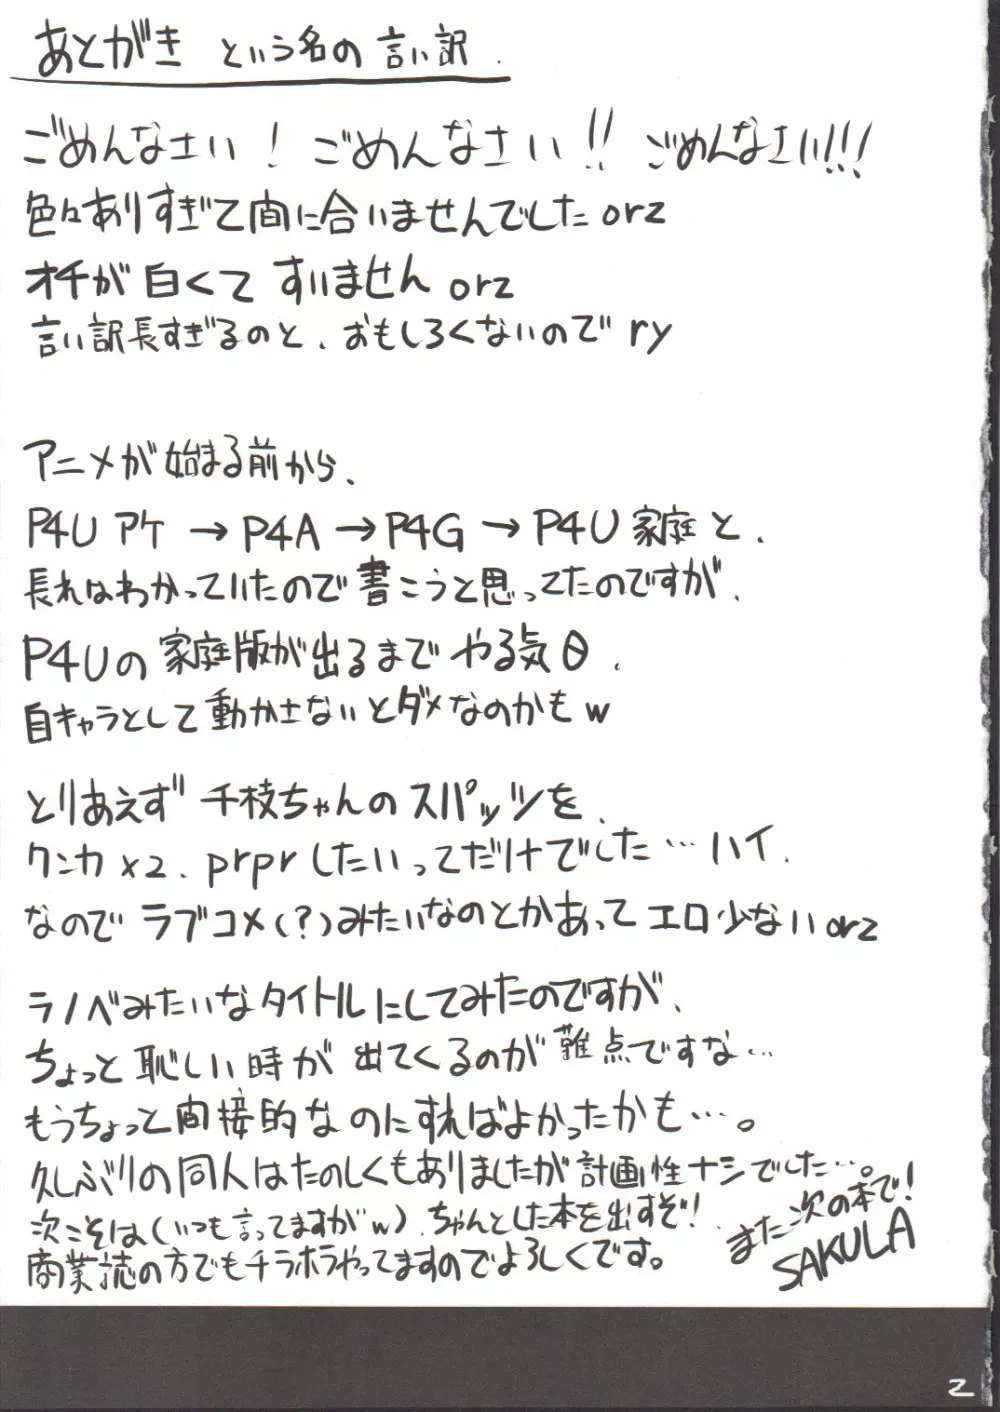 あとがき という名の言い訳.
ごめんなさい! ごめんなさい!! ごめんなさい!!!
色々ありすぎて間に合いませんでしたorz
オチが白くてすいませんorz
言い訳長すぎるのと、おもしろくないのでry
アニメが始まる前から、
P4Uアケ→P4A→P4G→P4U家庭と、
長れはわかっていたので書こうと思ってたのですが、
P4Uの家庭版が出るまでやる気0、
自キャラとして動かさないとダメなのかもw
とりあえず千枝ちゃんのスパッツを、
クンカx2、prprしたいってだけでした…ハイ、
なのでラブコメ(?)みたいなのとかあってエロ少ないorz
ラノベみたいなタイトルにしてみたのですが、
ちょっと恥しい時が出てくるのが難点ですな…
もうちょっと間接的なのにすればよかったかも…。
久しぶりの同人はたのしくもありましたが計画性ナシでした…。
次こそは(いつも言ってますがw)、ちゃんとした本を出すぞ!
商業誌の方でもチラホラやってますのでよろしくです。
また次の本で!
SAKULA
2